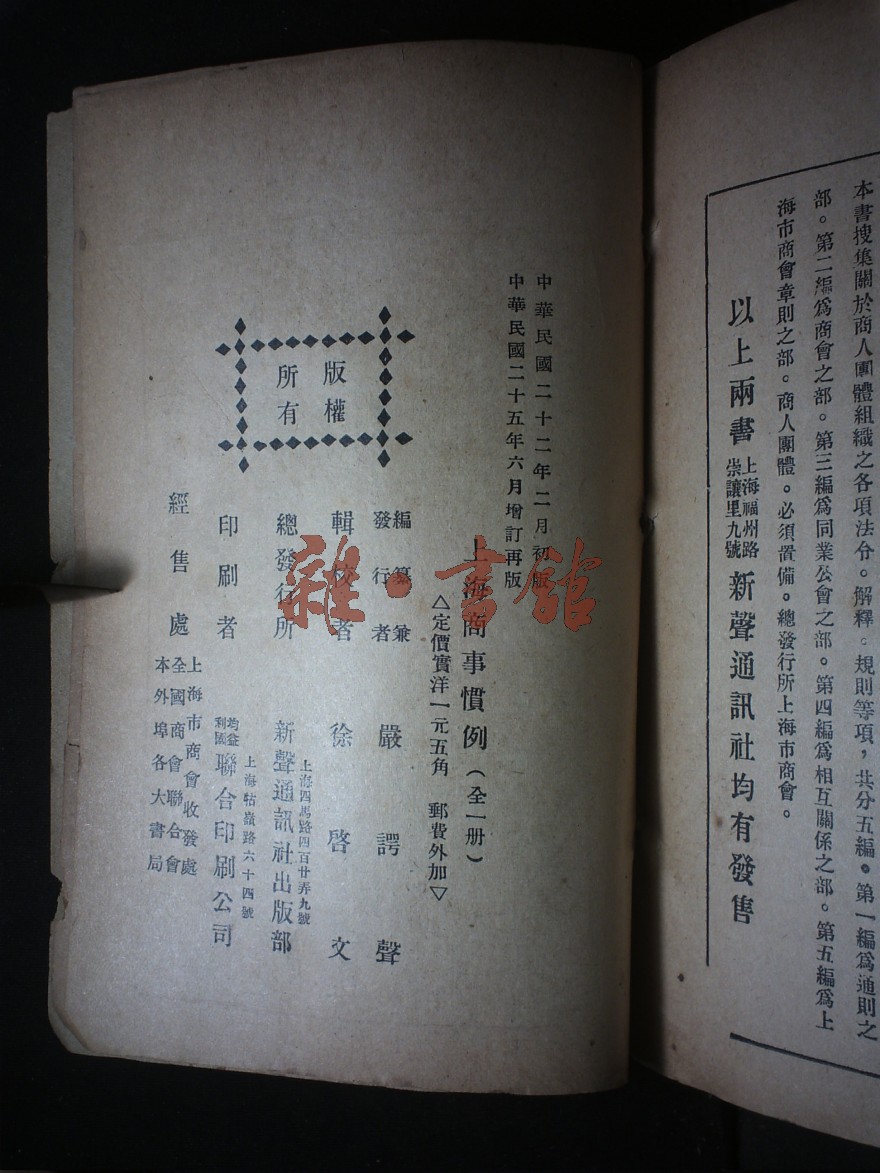 本書搜集關於商人團體組織之各項法令。解釋。規則等項，共分五編。第一編爲通則之
部。第二編爲商會之部。第三編爲同業公會之部。第四編爲相互關係之部。第五編爲上
海市商會章則之部。商人團體。必須置備。總發行所上海市商會。
以上兩書
上海福州路
崇讓里九號
新聲通訊社均有發售
中華民國二十二年二月初版
中華民國二十五年六月增訂再版
上海商事慣例（全一册）
△定價實洋一元五角 郵費外加▽
編纂兼
發行者
嚴諤聲
輯校者 徐啓文
總發行所
上海四馬路四百廿弄九號
新聲通訊社出版部
印刷者
上海牯嶺路六十四號
均益
利國
聯合印刷公司
經售處
上海市商會收發處
全國商會聯合會
本外埠各大書局
版權
所有
雜·書館